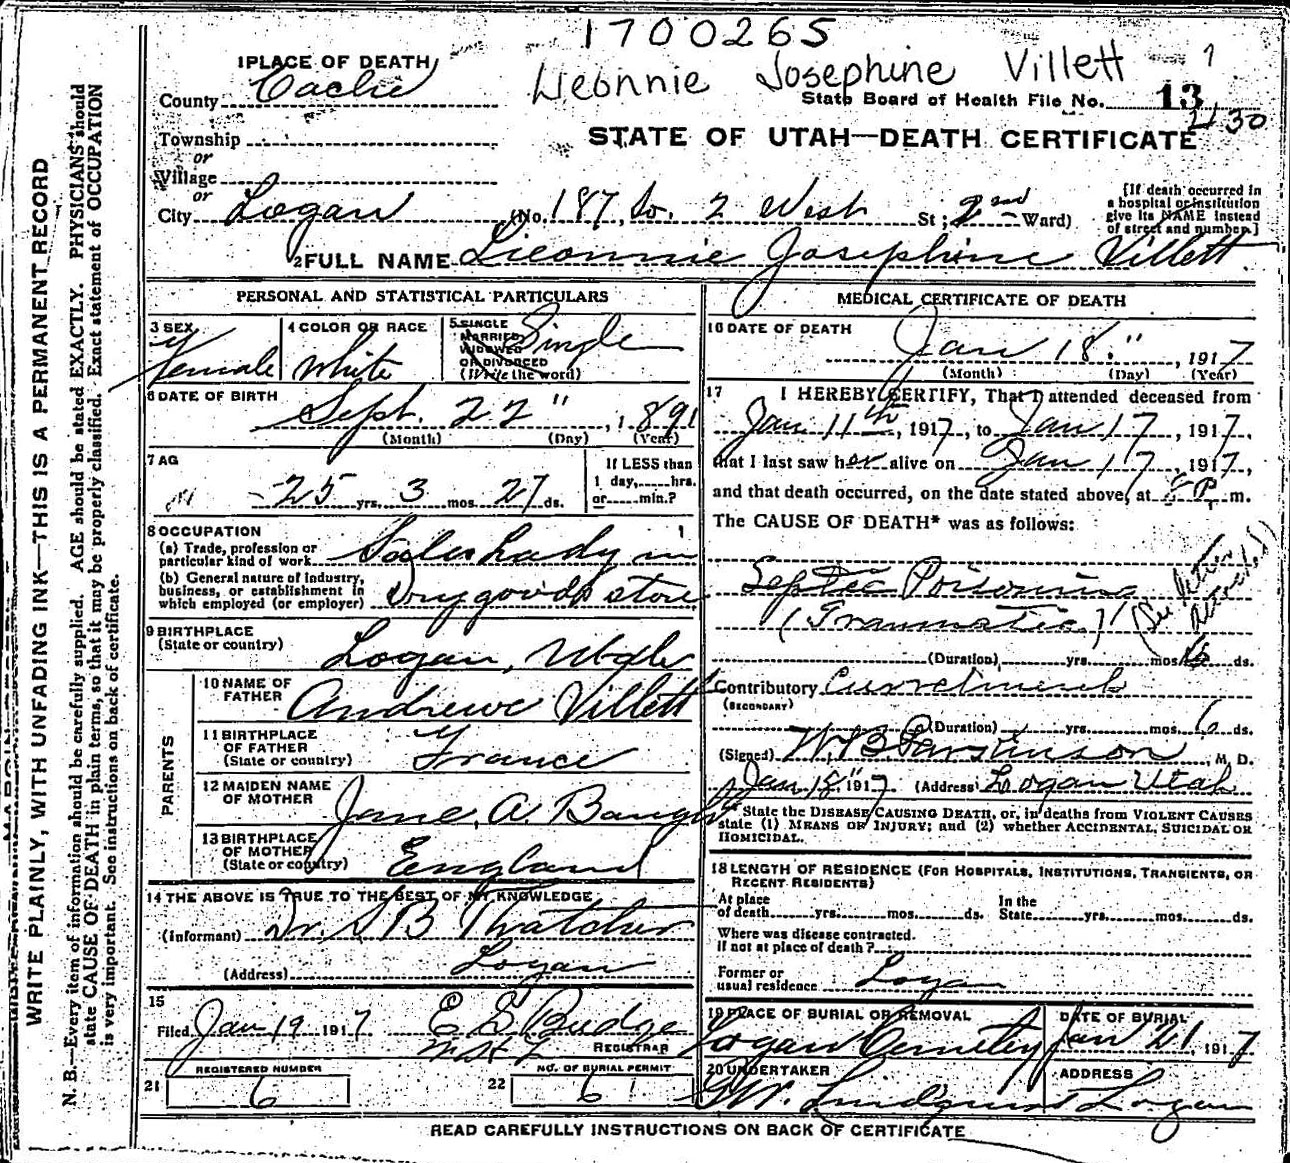 1700265
Lieonnie Josephine Villett
1 PLACE OF DEATH
County Cache
State Board of Health File No. 13
430
Township
or
Village
or
City Logan (No. 187, So. 2 West St; 2nd Ward)
STATE OF UTAH—DEATH CERTIFICATE
[If death occurred in
a hospital or institution
give its NAME instead
of street and number.]
2 FULL NAME Lieonnie Josephine Villett
PERSONAL AND STATISTICAL PARTICULARS
3 SEX Female
4 COLOR OR RACE White
5 SINGLE
MARRIED
WIDOWED
OR DIVORCED
(Write the word)
Single
6 DATE OF BIRTH
Sept. 22", 1891
(Month) (Day) (Year)
7 AG
25 yrs. 3 mos. 27 ds.
If LESS than
1 day, hrs.
or min.?
8 OCCUPATION
(a) Trade, profession or
particular kind of work Sales Lady in
(b) General nature of Industry,
business, or establishment in
which employed (or employer) Dry goods store
9 BIRTHPLACE
(State or country) Logan, Utah
PARENTS
10 NAME OF
FATHER Andrewe Villett
11 BIRTHPLACE
OF FATHER
(State or country) France
12 MAIDEN NAME
OF MOTHER Jane. A
13 BIRTHPLACE
OF MOTHER
(State or country) England
14 THE ABOVE IS TRUE TO THE BEST OF MY KNOWLEDGE
(Informant) Dr. S B Thatcher
(Address) Logan
15
Filed Jan 19 1917 E E Budge
REGISTRAR
REGISTERED NUMBER
21 6
NO. OF BURIAL PERMIT
22 6
MEDICAL CERTIFICATE OF DEATH
16 DATE OF DEATH
Jan 18", 1917
(Month) (Day) (Year)
17 I HEREBY CERTIFY, That I attended deceased from
Jan 11th, 1917, to Jan 17, 1917,
that I last saw her alive on Jan 17, 1917,
and that death occurred, on the date stated above, at P. m.
The CAUSE OF DEATH* was as follows:
Septic Poisoning
(Traumatic)
(See letter
attached)
(Duration) yrs. mos. ds.
Contributory Curretment
(SECONDARY)
(Duration) yrs. mos. 6 ds.
(Signed) W. B. Parkinson, M. D.
Jan 18" 1917 (Address) Logan Utah
* State the DISEASE CAUSING DEATH, or, in deaths from VIOLENT CAUSES
state (1) MEANS OF INJURY; and (2) whether ACCIDENTAL, SUICIDAL OR
HOMICIDAL.
18 LENGTH OF RESIDENCE (FOR HOSPITALS, INSTITUTIONS, TRANSIENTS, OR
RECENT RESIDENTS)
At place
of death yrs. mos. ds. In the
State yrs. mos. ds.
Where was disease contracted.
if not at place of death?
Former or
usual residence Logan
19 PLACE OF BURIAL OR REMOVAL
Logan Cemetery
DATE OF BURIAL
Jan 21, 1917
20 UNDERTAKER
Lundquist
ADDRESS
Logan
READ CAREFULLY INSTRUCTIONS ON BACK OF CERTIFICATE
WRITE PLAINLY, WITH UNFADING INK—THIS IS A PERMANENT RECORD
N. B.—Every item of information should be carefully supplied. AGE should be stated EXACTLY. PHYSICIANS should
state CAUSE OF DEATH in plain terms, so that it may be properly classified. Exact statement of OCCUPATION
is very important. See instructions on back of certificate.